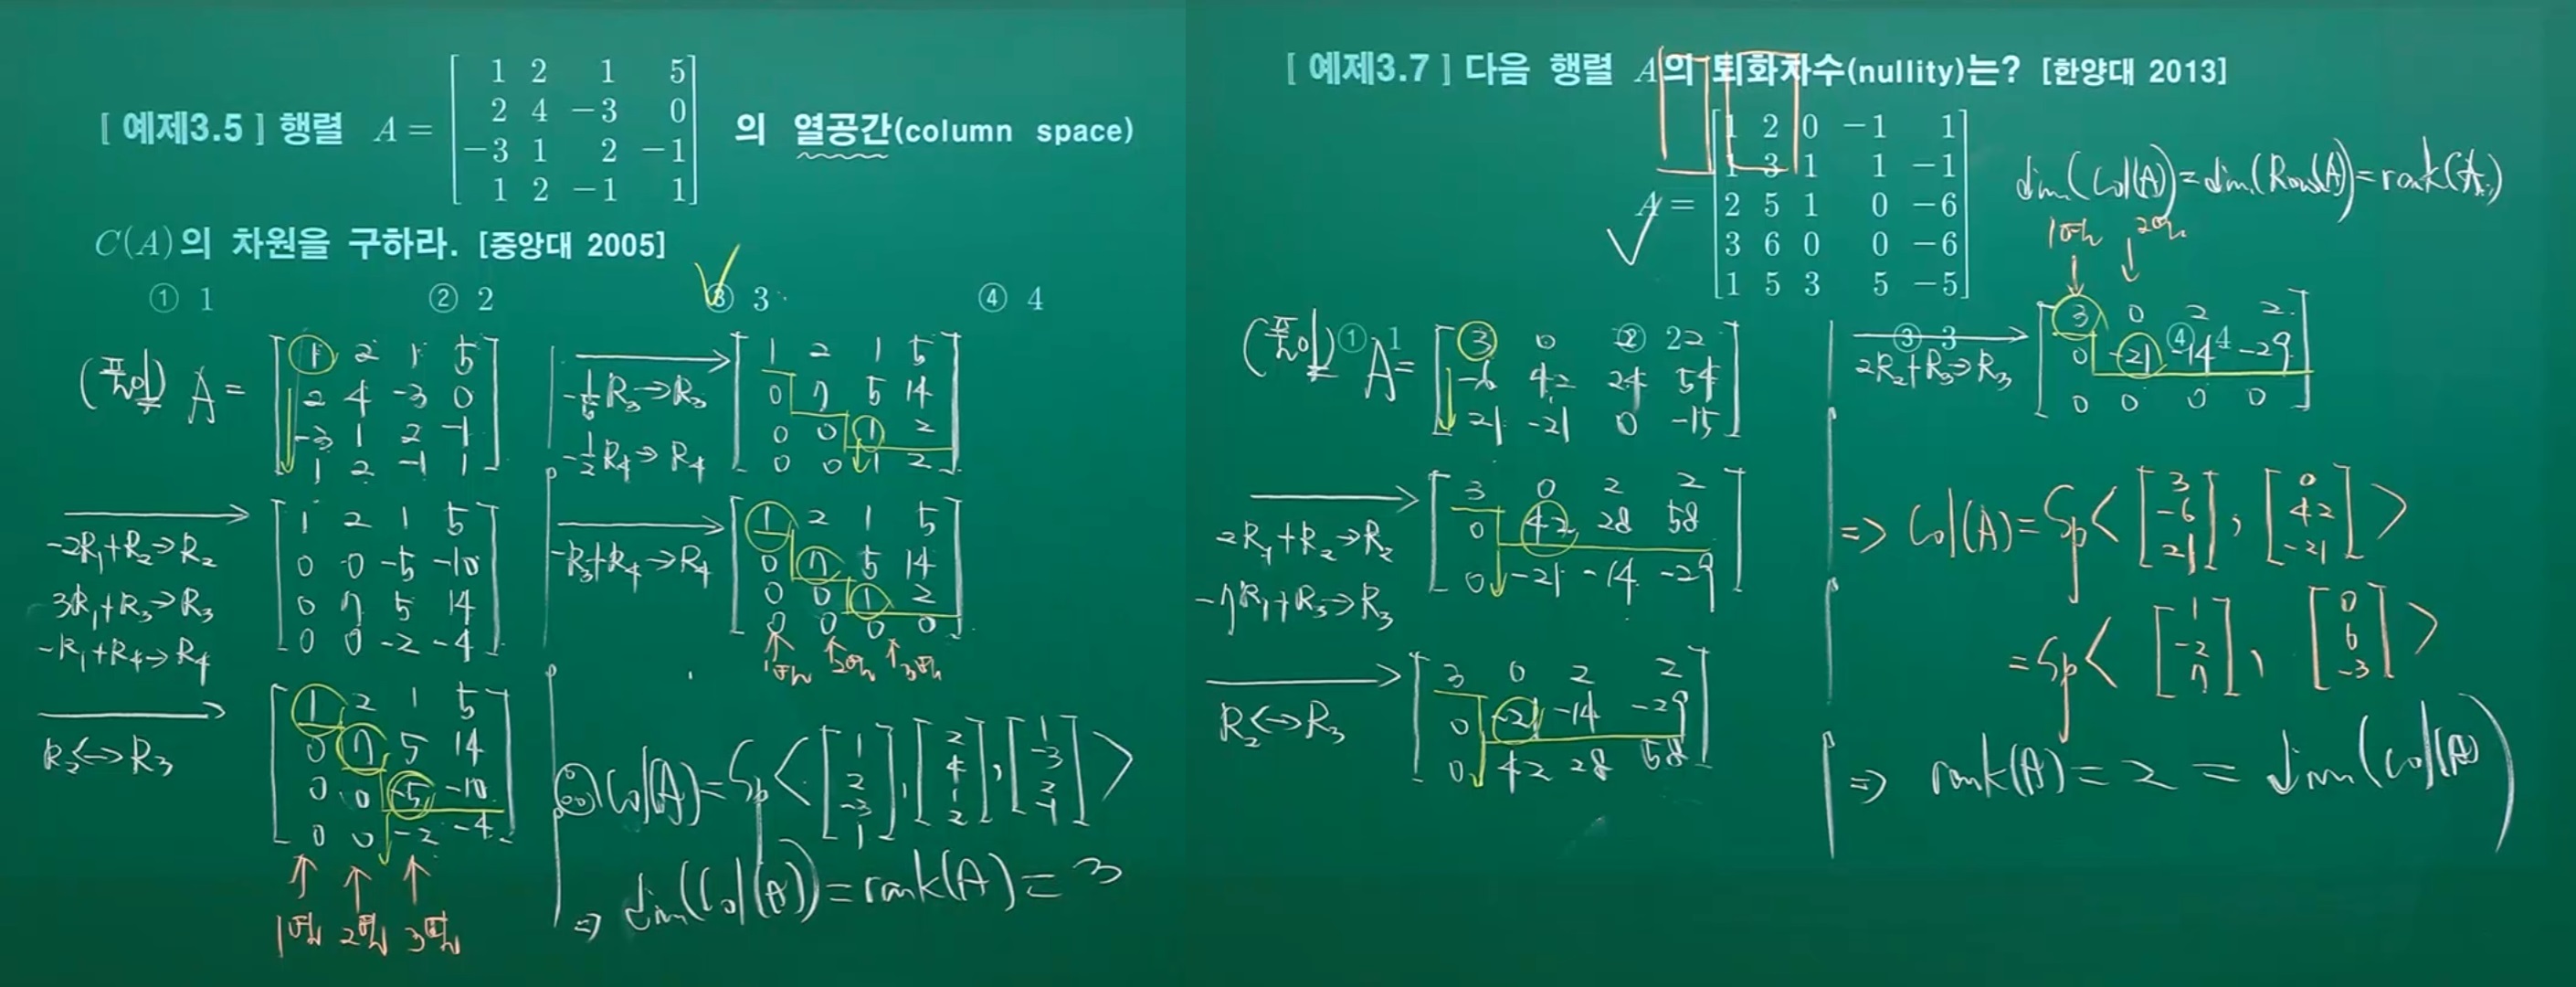 [ 예제3.5 ] 행렬 A =
1 2 1 5
2 4 −3 0
−3 1 2 −1
1 2 −1 1
의 열공간(column space)
C(A)의 차원을 구하라. [중앙대 2005]
① 1 ② 2 ③ 3 ④ 4
(풀이) A =
1 2 1 5
2 4 -3 0
-3 1 2 -1
1 2 -1 1
-2R₁+R₂→R₂
3R₁+R₃→R₃
-R₁+R₄→R₄
1 2 1 5
0 0 -5 -10
0 7 5 14
0 0 -2 -4
R₂↔R₃
1 2 1 5
0 7 5 14
0 0 -5 -10
0 0 -2 -4
1열 2열 3열
-1/5 R₃→R₃
-1/2 R₄→R₄
1 2 1 5
0 7 5 14
0 0 1 2
0 0 1 2
-R₃+R₄→R₄
1 2 1 5
0 7 5 14
0 0 1 2
0 0 0 0
1열 2열 3열
Col(A)=Sp<
1 2 1
2 4 -3
-3 1 2
1 2 -1
>
⇒ dim(Col(A))=rank(A)=3
[ 예제3.7 ] 다음 행렬 A의 퇴화차수(nullity)는? [한양대 2013]
A =
1 2 0 −1 1
1 3 1 1 −1
2 5 1 0 −6
3 6 0 0 −6
1 5 3 5 −5
① 1 ② 2 ③ 3 ④ 4
dim(Col(A))=dim(Row(A))=rank(A)
(풀이) A=
3 0 2 2
-6 42 24 54
21 -21 0 -15
2R₁+R₂→R₂
-7R₁+R₃→R₃
3 0 2 2
0 42 28 58
0 -21 -14 -29
R₂↔R₃
3 0 2 2
0 -21 -14 -29
0 42 28 58
2R₂+R₃→R₃
1열 2열
3 0 2 2
0 -21 -14 -29
0 0 0 0
⇒ Col(A)=Sp<
3 0
-6 42
21 -21
>
=Sp<
1 0
-2 6
7 -3
>
⇒ rank(A)=2=dim(Col(A))